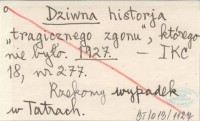 Dziwna historja
„tragicznego zgonu", którego
nie było. 1927. – IKC
18, nr 277.
Rzekomy wypadek
w Tatrach.
BT/013/1127